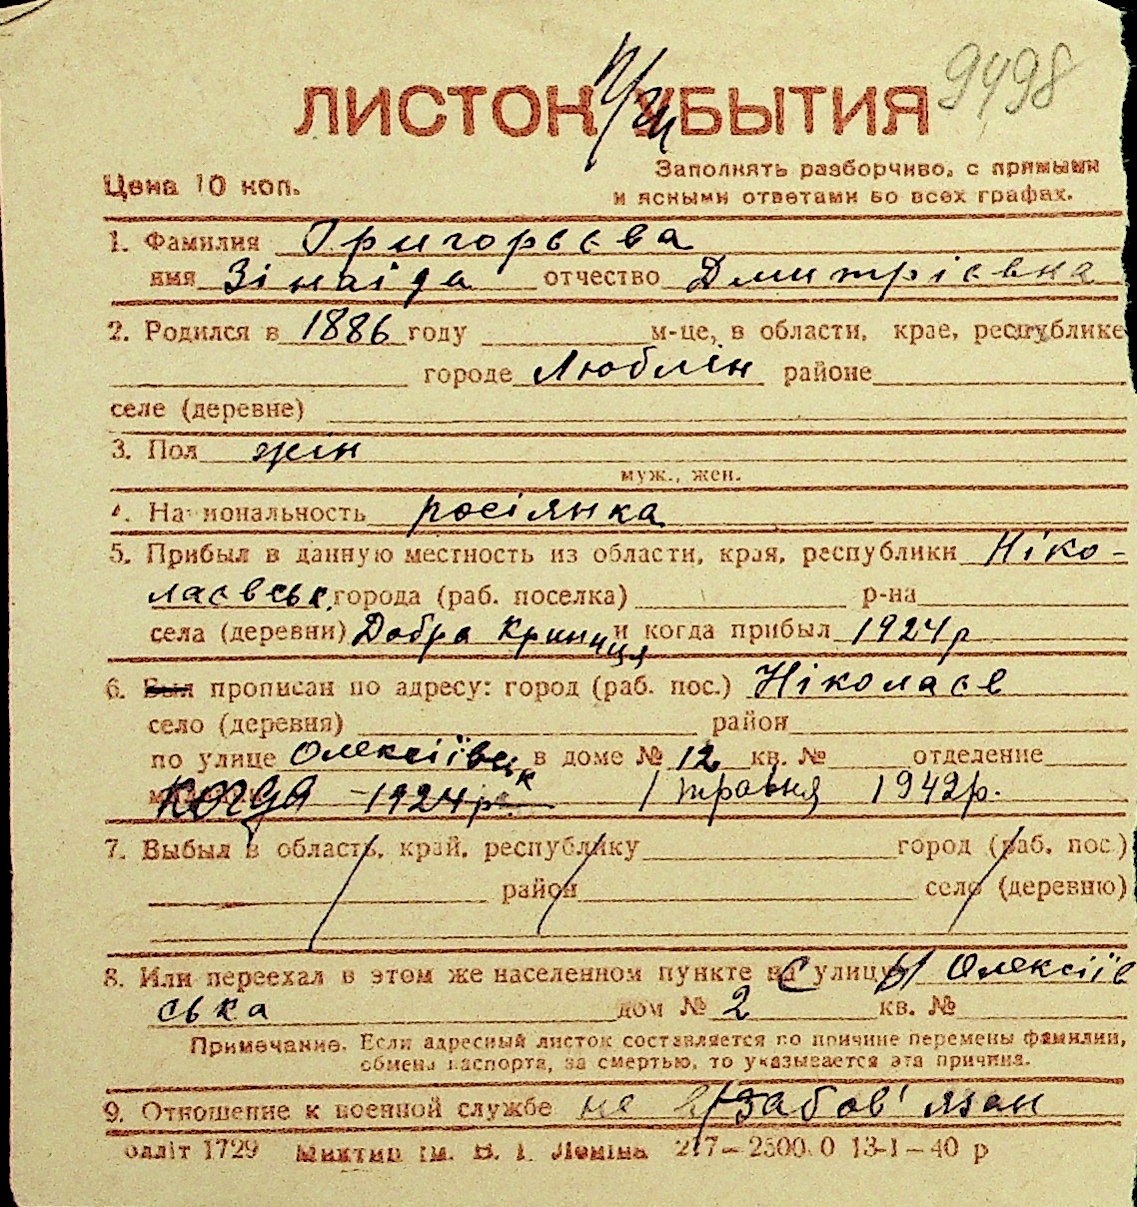 9498
ЛИСТОК УБЫТИЯ
Цена 10 коп.
Заполнять разборчиво, с прямыми
и ясными ответами во всех графах.
1. Фамилия Григорьєва
имя Зінаіда отчество Дмитрієвна
2. Родился в 1886 году м-це, в области, крае, республике
городе Люблін районе
селе (деревне)
3. Пол жін
муж., жен.
4. Национальность росіянка
5. Прибыл в данную местность из области, края, республики Ніко-
лаєвськ. города (раб. поселка) р-на
села (деревни) Добра Криниця и когда прибыл 1924р
6. Был прописан по адресу: город (раб. пос.) Ніколаєв
село (деревня) район
по улице Олексіївськ в доме № 12 кв. № отделение
когда 1924р. 1 травня 1942р.
7. Выбыл в область, край, республику город (раб. пос.)
район село (деревню)
8. Или переехал в этом же населенном пункте на С улицу ы Олексіїв
ська дом № 2 кв. №
Примечание. Если адресный листок составляется по причине перемены фамилии,
обмена паспорта, за смертью, то указывается эта причина.
9. Отношение к военной службе не в/забов'язан
одліт 1729 Миктип ім. В. І. Леніна 217—2500.0 13-1—40 р